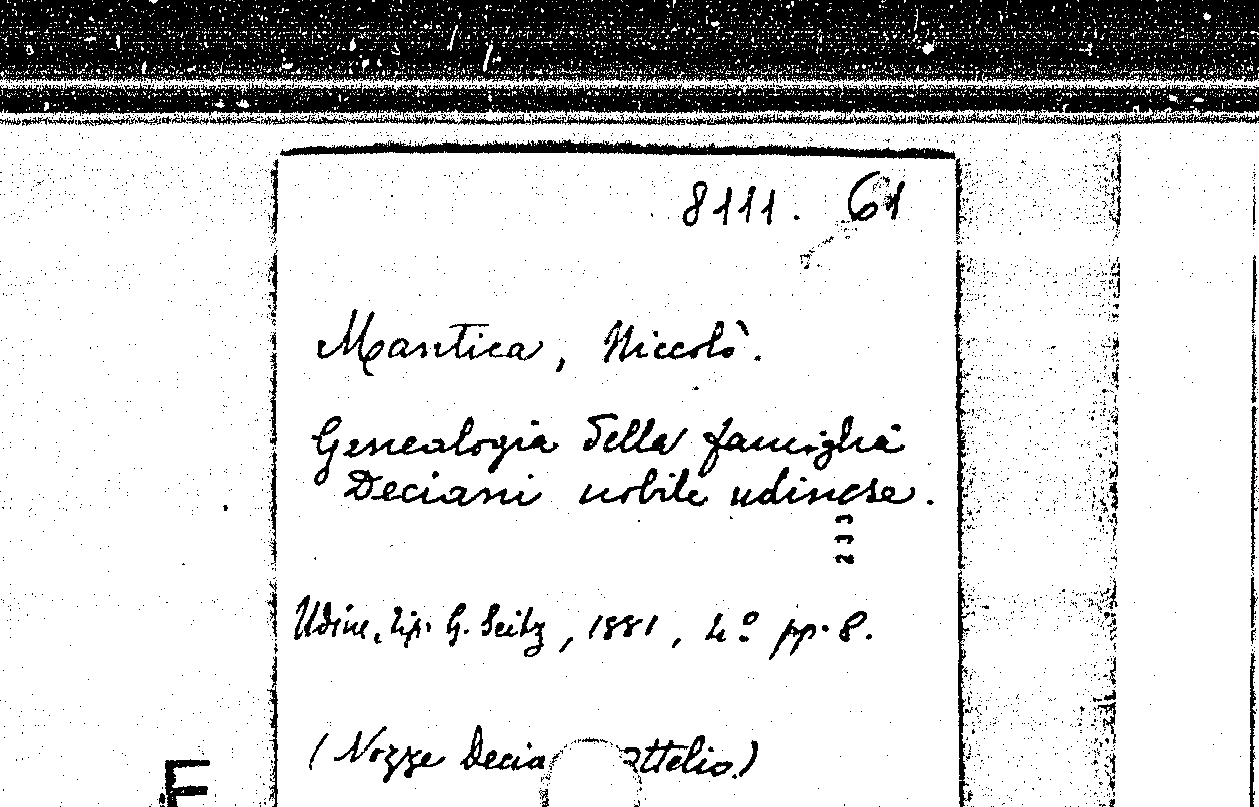 8111. 61
Mantica, Niccolò.
Genealogia della famiglia
Deciani nobile udinese.
233
Udine, tip. G. Seitz, 1881, 4º pp. 8.
(Nozze Decia ttelio)
F